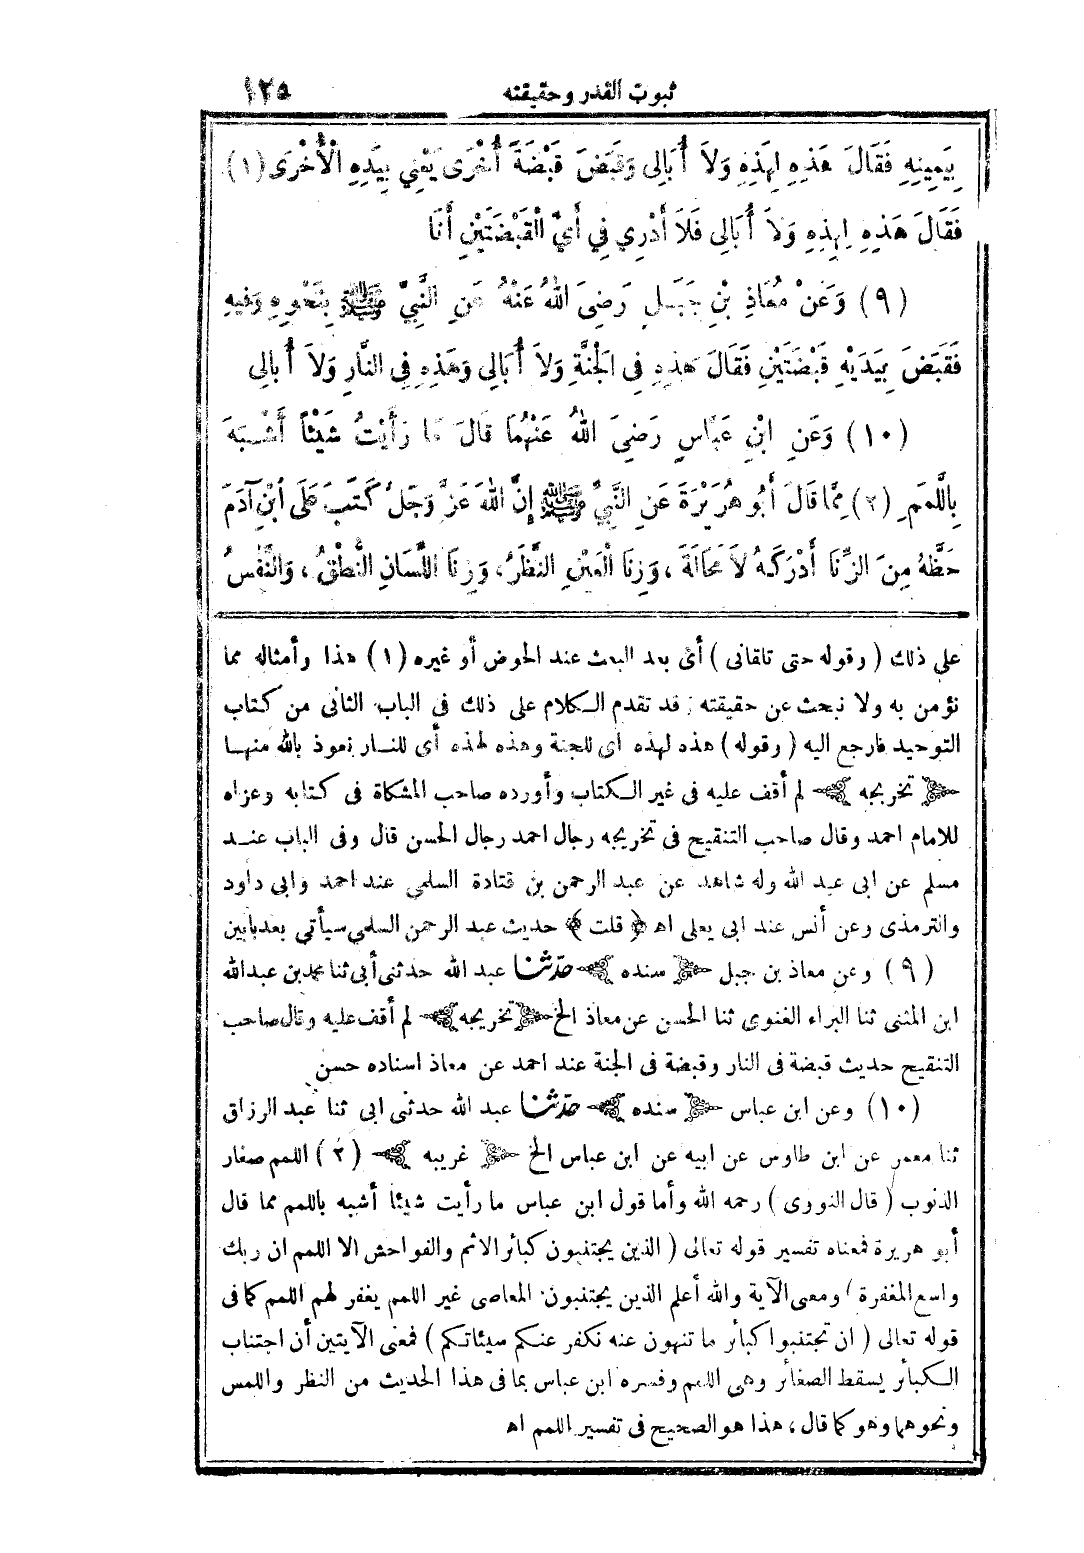 ثبوت القدر وحقيقته ١٢٥
بِيَمِينِهِ فَقَالَ هَذِهِ لِهَذِهِ وَلاَ أُبَالِى وَقَبَضَ قَبْضَةً أُخْرَى يَعْنِي بِيَدِهِ الْأُخْرَى (١)
فَقَالَ هَذِهِ لِهَذِهِ وَلاَ أُبَالِى فَلاَ أَدْرِي فِي أَيِّ الْقَبْضَتَيْنِ أَنَا
(٩) وَعَنْ مُعَاذِ بْنِ جَبَلٍ رَضِىَ اللهُ عَنْهُ عَنِ النَّبِيِّ ﷺ بِنَحْوِهِ وَفِيهِ
فَقَبَضَ بِيَدَيْهِ قَبْضَتَيْنِ فَقَالَ هَذِهِ فِى الْجَنَّةِ وَلاَ أُبَالِى وَهَذِهِ فِى النَّارِ وَلاَ أُبَالِى
(١٠) وَعَنِ ابْنِ عَبَّاسٍ رَضِىَ اللهُ عَنْهُمَا قَالَ مَا رَأَيْتُ شَيْئًا أَشْبَهَ
بِاللَّمَمِ (٢) مِمَّا قَالَ أَبُو هُرَيْرَةَ عَنِ النَّبِيِّ ﷺ إِنَّ اللهَ عَزَّ وَجَلَّ كَتَبَ عَلَى ابْنِ آدَمَ
حَظَّهُ مِنَ الزِّنَا أَدْرَكَهُ لاَ مَحَالَةَ ، وَزِنَا الْعَيْنِ النَّظَرُ، وَزِنَا اللِّسَانِ النُّطْقُ ، وَالنَّفْسُ
على ذلك ( وقوله حتى تلقانى ) أى بعد البعث عند الحوض أو غيره (١) هذا وأمثاله مما
نؤمن به ولا نبحث عن حقيقته ; قد تقدم الكلام على ذلك فى الباب الثانى من كتاب
التوحيد فارجع اليه ( وقوله ) هذه لهذه أى للجنة وهذه لهذه أى للنار نعوذ بالله منها
﴿ تخريجه ﴾ لم أقف عليه فى غير الكتاب وأورده صاحب المشكاة فى كتابه وعزاه
للامام احمد وقال صاحب التنقيح فى تخريجه رجال احمد رجال الحسن قال وفى الباب عند
مسلم عن ابى عبد الله وله شاهد عن عبد الرحمن بن قتادة السلمى عند احمد وابى داود
والترمذى وعن أنس عند ابى يعلى اه ﴿ قلت ﴾ حديث عبد الرحمن السلمى سيأتى بعد بابين
(٩) وعن معاذ بن جبل ﴿ سنده ﴾ حدثنا عبد الله حدثنى أبى ثنا محمد بن عبدالله
ابن المثنى ثنا البراء الغنوى ثنا الحسن عن معاذ الخ ﴿ تخريجه ﴾ لم أقف عليه وقال صاحب
التنقيح حديث قبضة فى النار وقبضة فى الجنة عند احمد عن معاذ اسناده حسن
(١٠) وعن ابن عباس ﴿ سنده ﴾ حدثنا عبد الله حدثنى ابى ثنا عبد الرزاق
ثنا معمر عن ابن طاوس عن ابيه عن ابن عباس الخ ﴿ غريبه ﴾ (٢) اللمم صغار
الذنوب ( قال النووى ) رحمه الله وأما قول ابن عباس ما رأيت شيئا أشبه باللمم مما قال
أبو هريرة فمعناه تفسير قوله تعالى ( الذين يجتنبون كبائر الاثم والفواحش الا اللمم ان ربك
واسع المغفرة ) ومعنى الآية والله أعلم الذين يجتنبون المعاصى غير اللمم يغفر لهم اللمم كما فى
قوله تعالى ( ان تجتنبوا كبائر ما تنهون عنه نكفر عنكم سيئاتكم ) فمعنى الآيتين أن اجتناب
الكبائر يسقط الصغائر وهى اللمم وفسره ابن عباس بما فى هذا الحديث من النظر واللمس
ونحوهما وهو كما قال ، هذا هو الصحيح فى تفسير اللمم اه